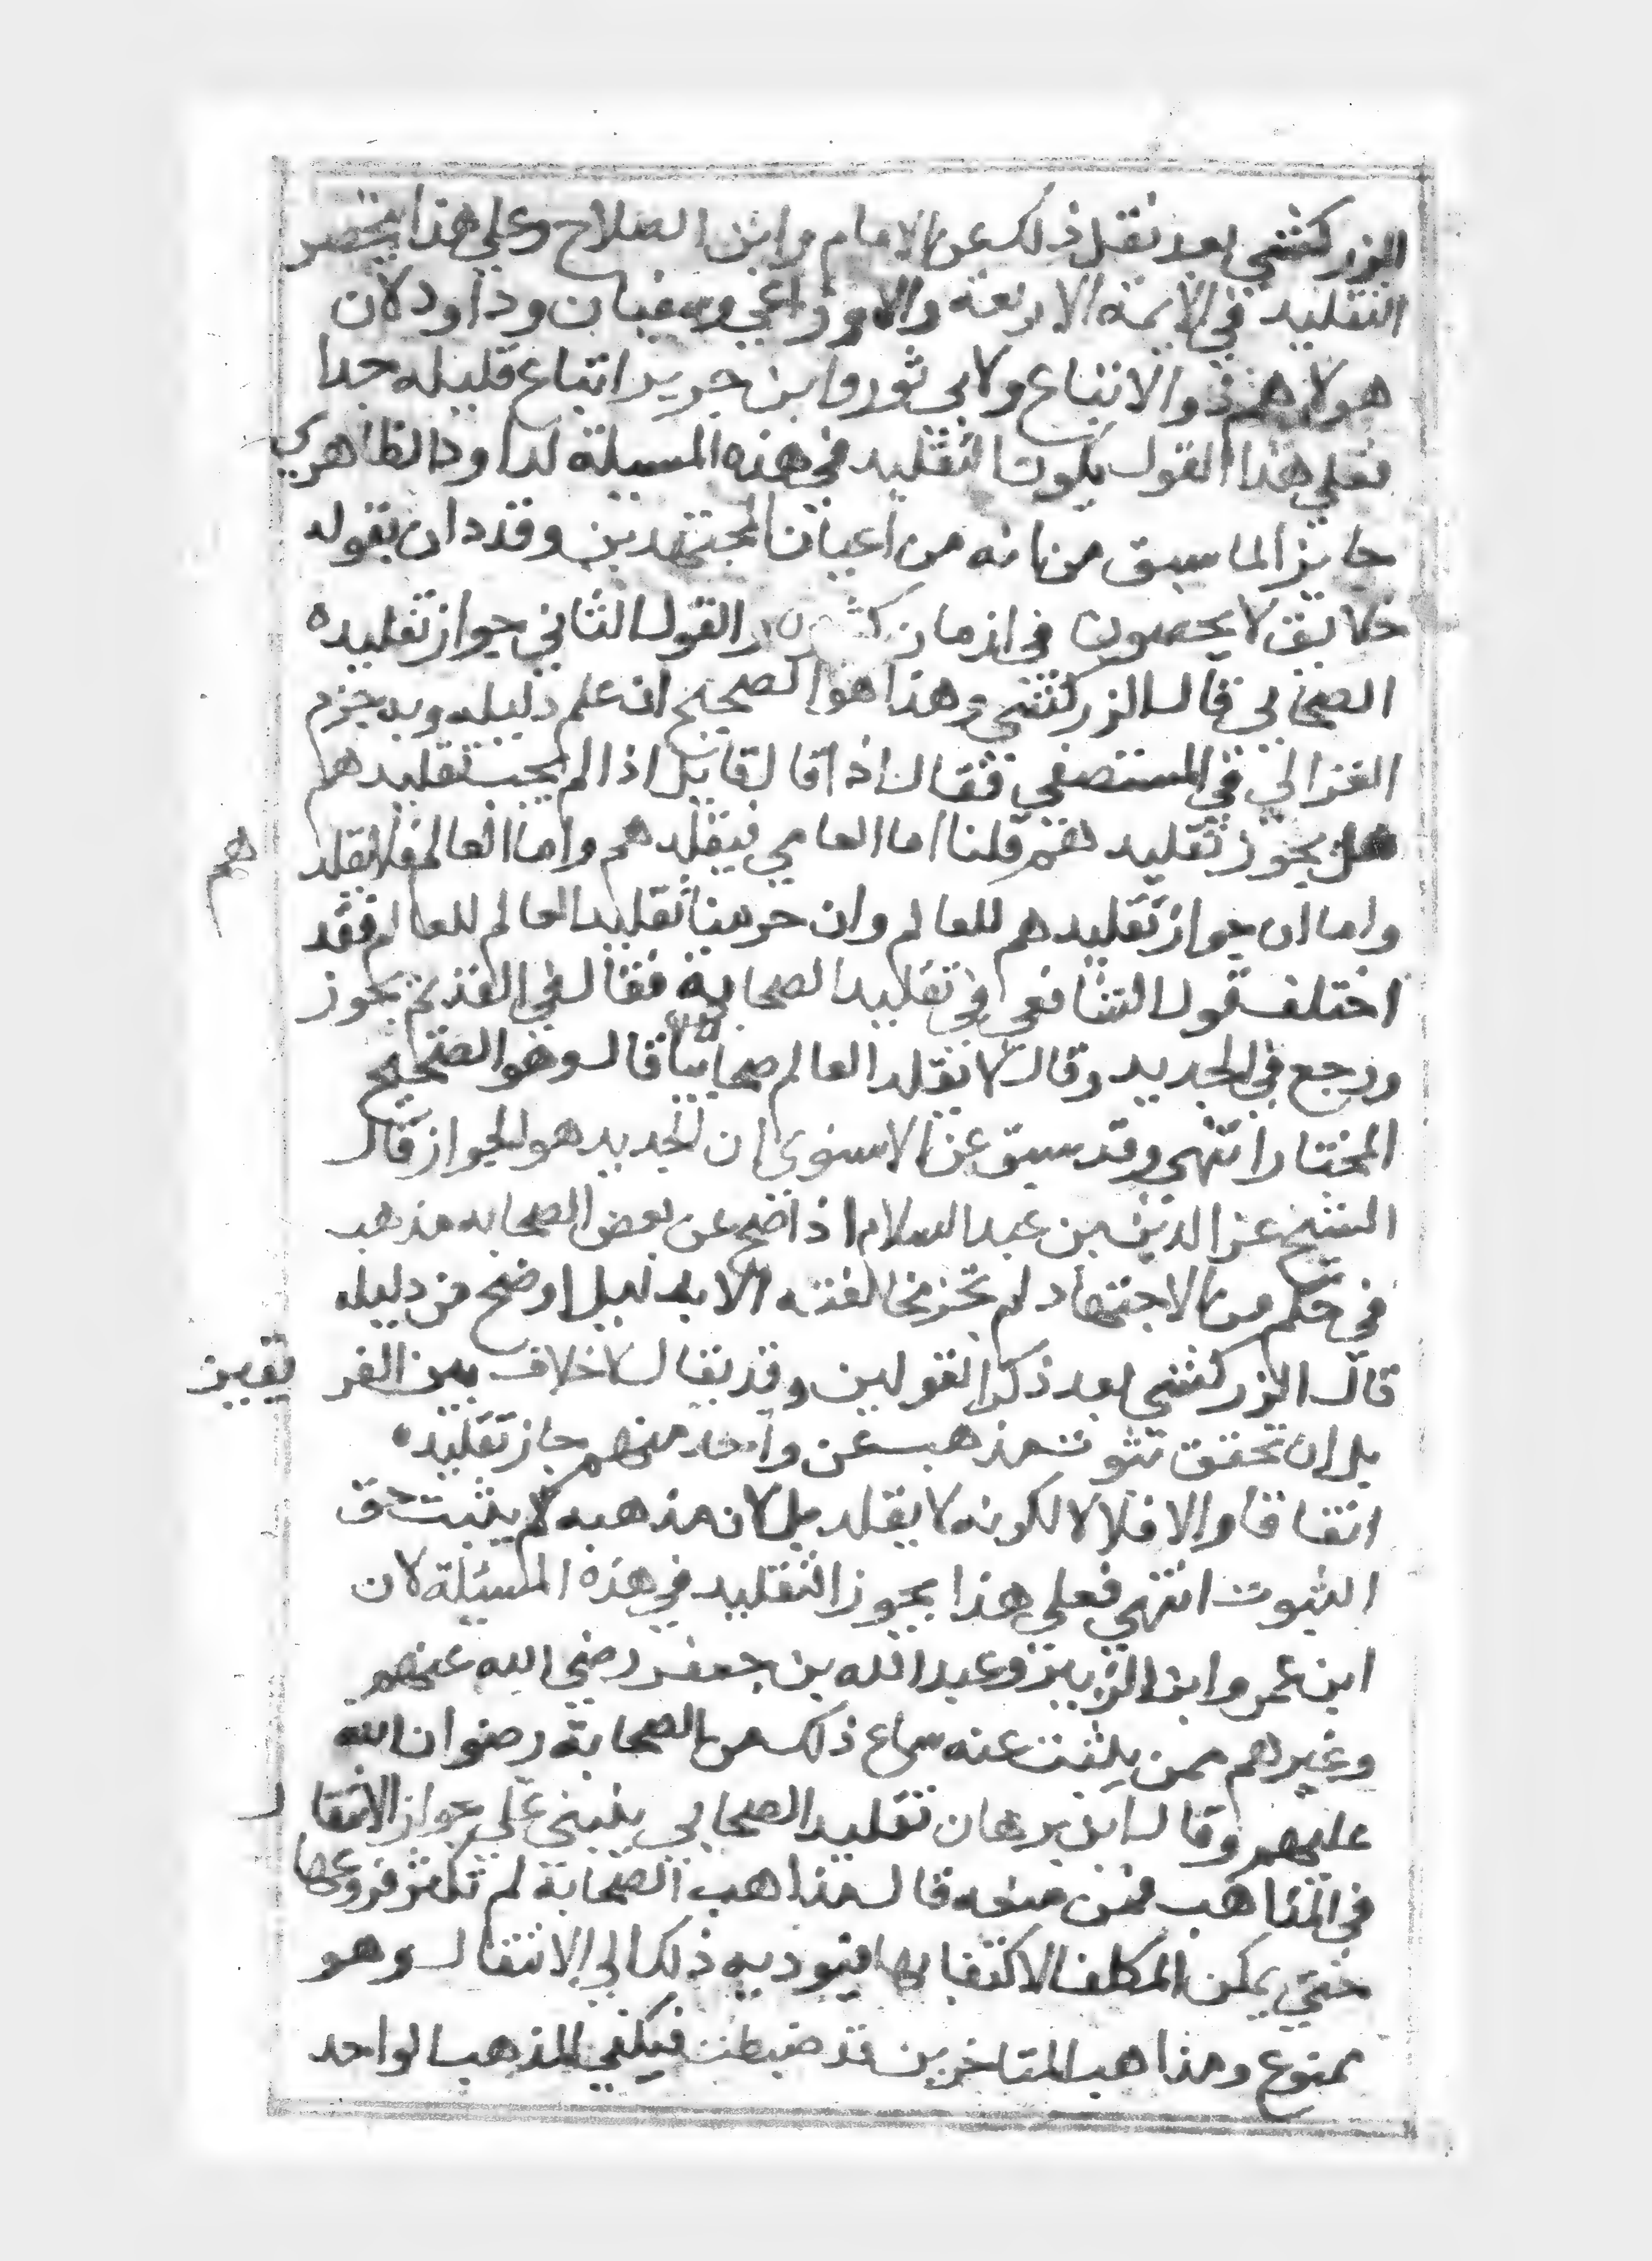 الزركشي بعد نقل ذلك عن الامام وابن الصلاح وعلي هذا ينحصر
التقليد في الايمة الاربعة والاوزاعي وسفيان وداود لان
هولا هم ذو والاتباع ولابي ثور وابن جرير اتباع قليله جدا
فعلي هذا القول يكون التقليد في هذه المسيلة لداود الظاهري
جايز الما سبق من انه من اعيان المجتهدين وقد دان بقوله
خلايق لا يحصون في ازمان والقول الثاني جواز تقليده
الصحابي قال الزركشي وهذا هو الصحيح ان علم دليله وبه جزم
الغزالي في المستصفي فقال اذا قال قايل اذا لم يجب تقليدهم
هل يجوز تقليد هم قلنا اما العامي فيقلد هم واما العالم فلا نقلد هم
واما ان جواز تقليدهم للعالم وان حرمنا تقليد العالم للعالم فقد
اختلف قول الشافعي في تقليد الصحابة فقال في القديم يجوز
ورجع في الجديد وقال لا نقلد العالم صحابيا قال وهو الصحيح
المختار انتهي وقد سبق عن الاسنوي ان الجديد هو الجواز قال
الشيخ عز الدين بن عبد السلام اذا صح عن بعض الصحابه مذهب
في حكم من الاجتهاد لم تجز مخالفته الا بدليل اوضح من دليله
قال الزركشي بعد ذكر القولين وقد يقال لا خلاف بين الفر يقين
بل ان تحقق ثبوت مذهب عن واحد منهم جاز تقليده
اتفاقا والا فلا لا لكونه لا يقلد بل لان مذهبه لم يثبت حق
الثبوت انتهي فعلي هذا يجوز التقليد في هذه المسيلة لان
ابن عمر وابن الزبير وعبد الله بن جعفر رضي الله عنهم
وغيرهم ممن يثبت عنه سماع ذلك من الصحابة رضوان الله
عليهم وقال ابن برهان تقليد الصحابي ينبني علي جواز الانتقا ل
في المذاهب فمن منعه قال مذاهب الصحابة لم تكثر فروعها
حتي يمكن المكلف الاكتفا بها فيوديه ذلك الي الانتقال وهو
ممنوع ومذاهب المتاخرين قد ضبطت فيكفي المذهب الواحد